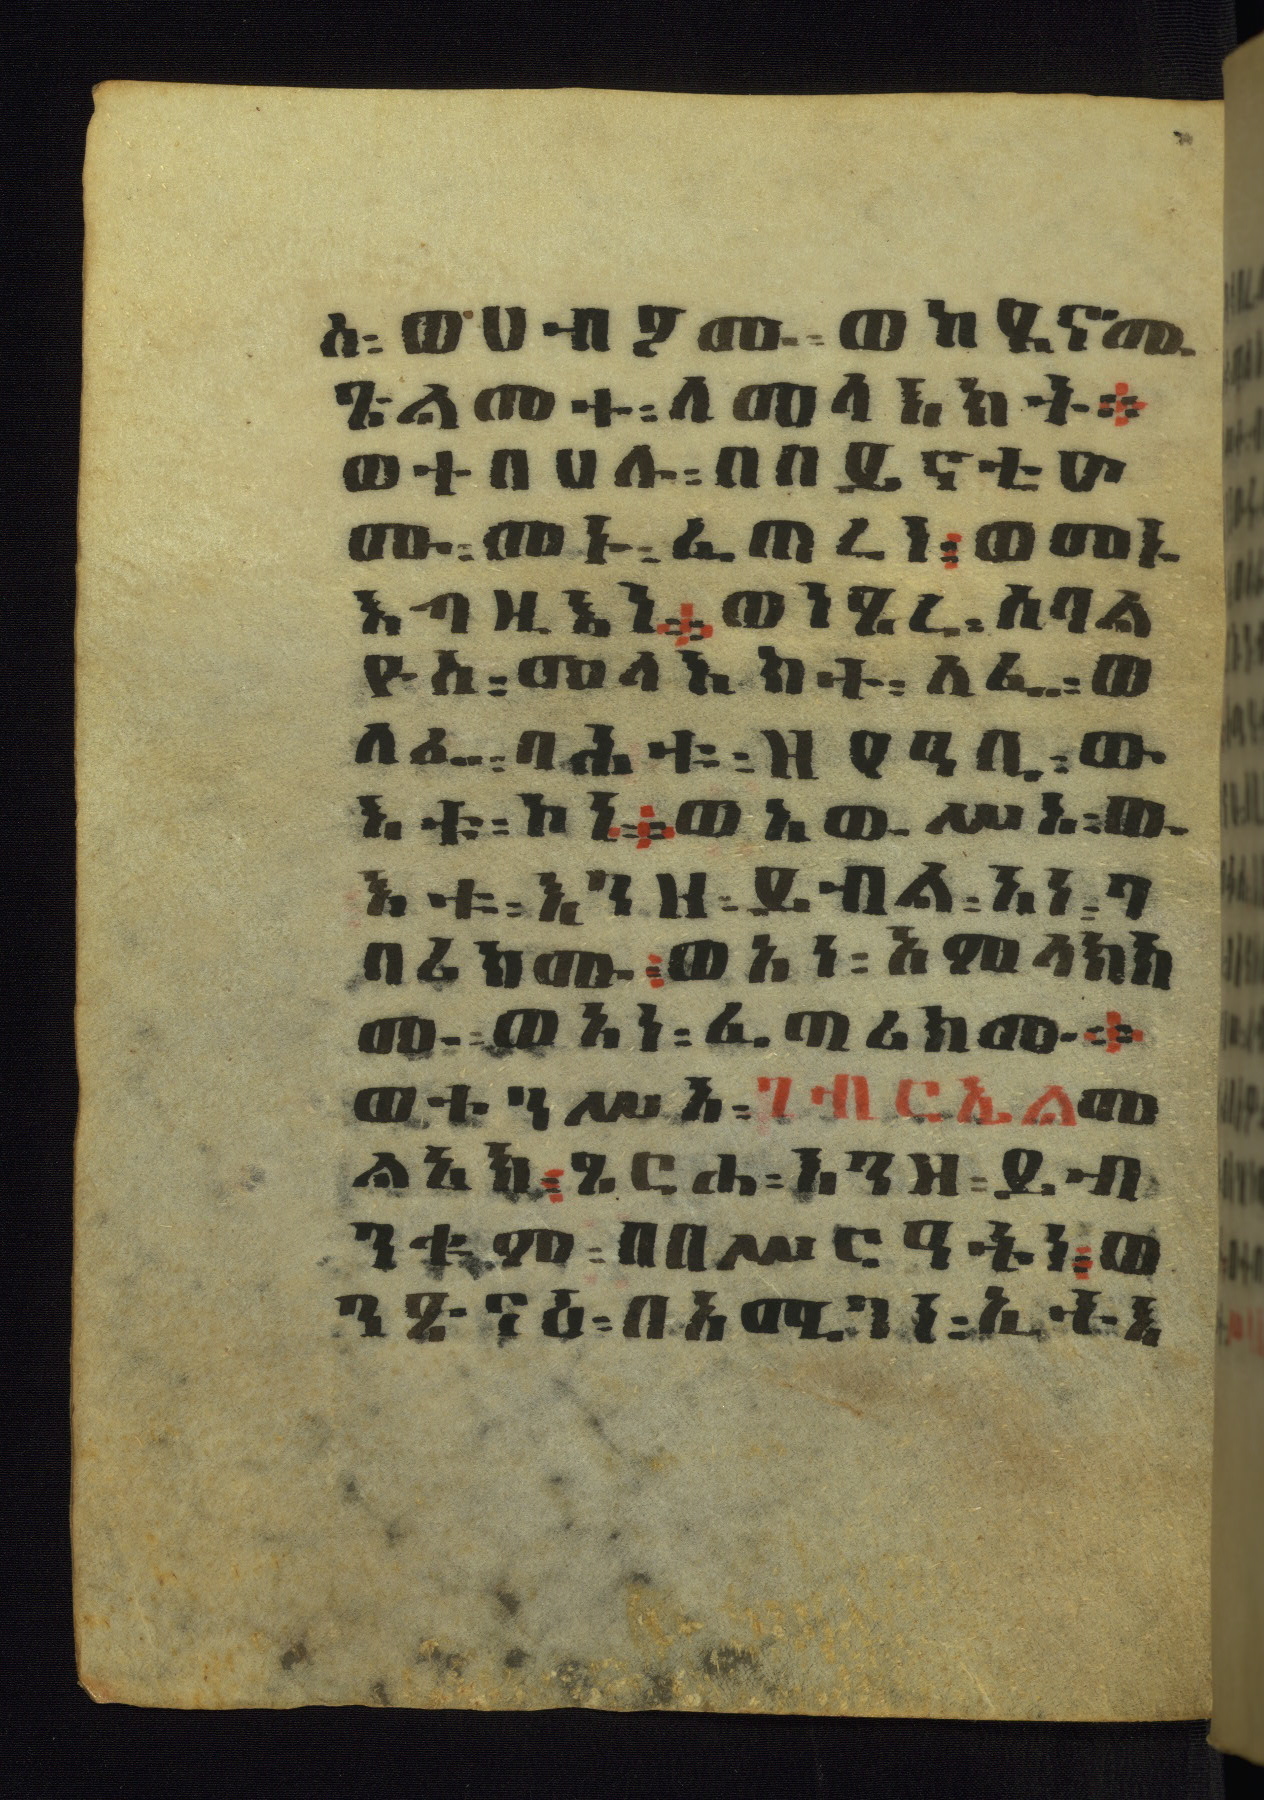 ሰ፡ ወሀብያሙ፡ ወከዪኖሙ
ጼልመተ፡ ለመላእክት።
ወተበሀሉ፡ በበይናቲሆ
ሙ፡ መኑ፡ ፈጠረነ፡ ወመኑ
እግዚእነ። ወነጺሮ፡ ሰባል
ዮስ፡ መላእክተ፡ ለፌ፡ ወ
ለፌ፡ በሕቱ፡ ዝየዓቢ፡ ው
እቱ፡ ኮነ። ወአውሥአ፡ ው
እቱ፡ እንዘ፡ ይብል፡ አነ፡ ገ
በሬክሙ፡ ወአነ፡ አምላክክ
ሙ፡ ወአነ፡ ፈጣሪክሙ።
ወተንሥአ፡ ገብርኤልመ
ልአክ፡ ጸርሐ፡ እንዘ፡ ይብ
ንቁም፡ በበሥርዓትነ፡ ወ
ንጽናዕ፡ በአሚን፡ ኢትኑ